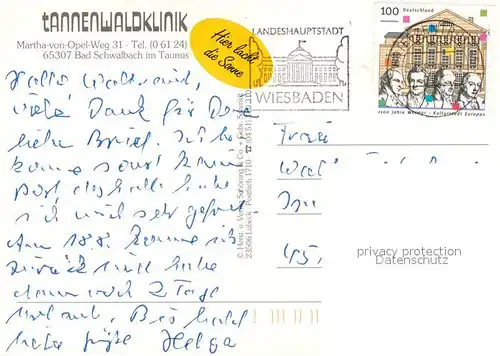 tANNENWALDKLINIK
Martha-von-Opel-Weg 31 - Tel. (0 61 24)
65307 Bad Schwalbach im Taunus
Hier lacht
die Sonne
LANDESHAUPTSTADT
WIESBADEN
100 Deutschland
1100 Jahre Weimar - Kulturstadt Europas
Hallo
viele Dank für Dein
liebe Brief. Ich
komme sonst keine
Post deshalb habe
ich mich sehr gefreut.
Am komme ich
zurück und habe
dann noch 2 Tage
Urlaub. Bis bald
liebe Grüße Helga
© Horst u. Verlag Schöning & Co. + Gebr. Schmidt
23506 Lübeck · Postfach 1710
Frau
Wal
Im
45
privacy protection
Datenschutz